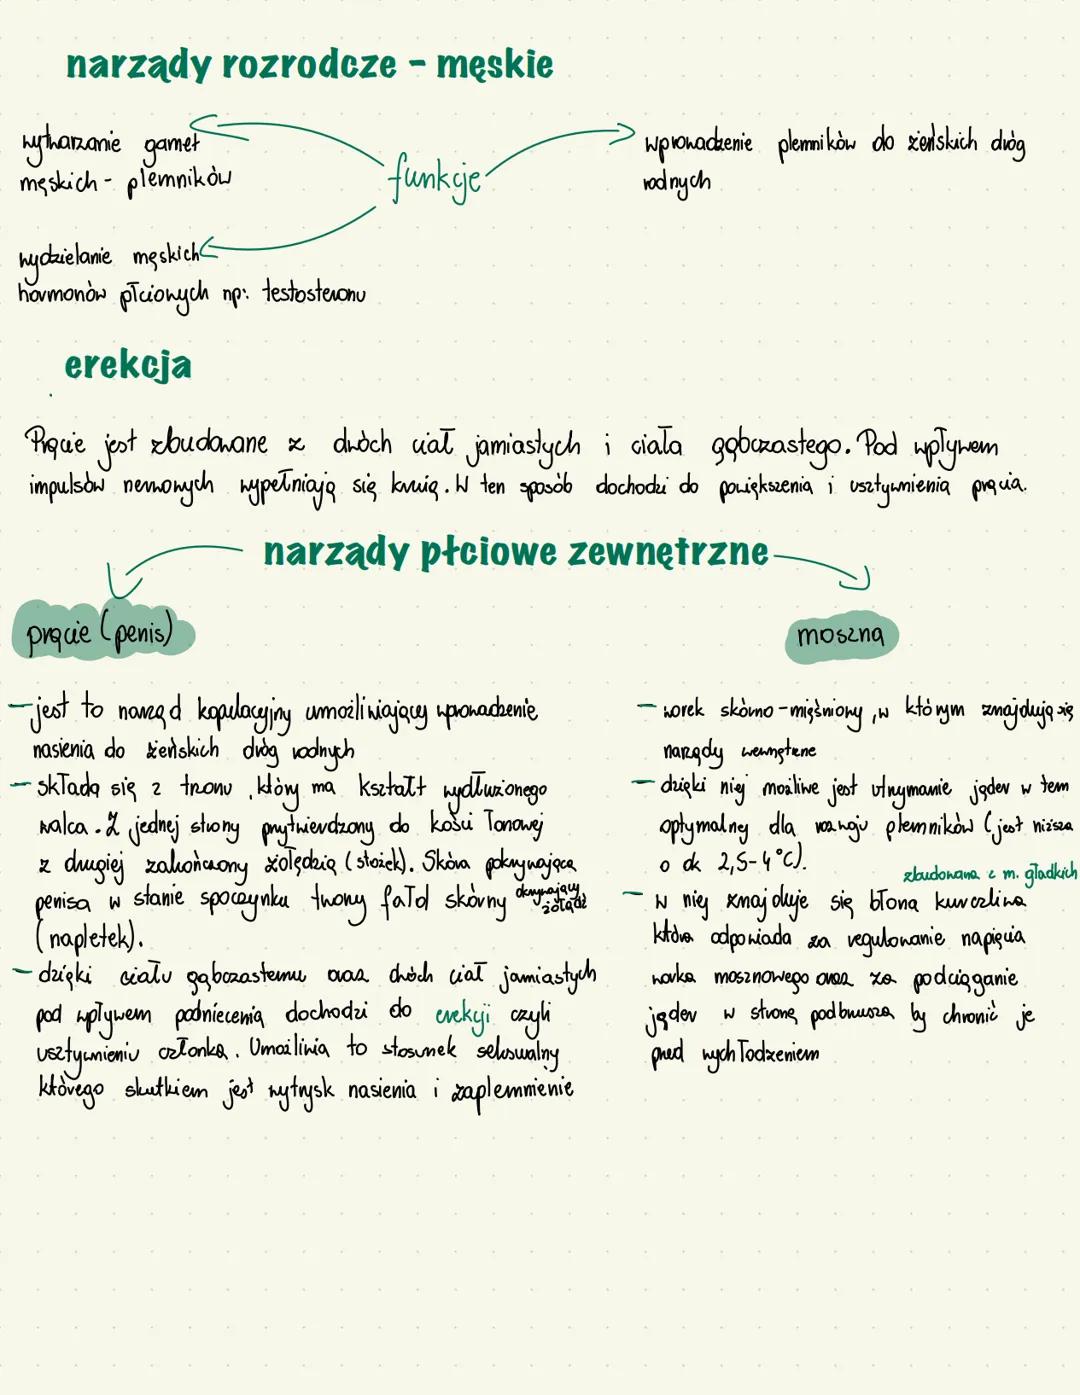 narządy rozrodcze - męskie
wytwarzanie gamet
męskich - plemników
funkcje
wprowadzenie plemników do żeńskich dróg
rodnych
wydzielanie męskich
hormonów płciowych np: testosteronu
erekcja
Prącie jest zbudowane z dwóch ciał jamiastych i ciała gąbczastego. Pod wpływem
impulsów nerwowych wypełniają się krwią. W ten sposób dochodzi do powiększenia i usztywnienia prącia.
narządy płciowe zewnętrzne
prącie (penis)
- jest to narząd kopulacyjny umożliwiający wprowadzenie
nasienia do żeńskich dróg rodnych
- składa się z trzonu, który ma kształt wydłużonego
walca. Z jednej strony przytwierdzony do kości łonowej
z drugiej zakończony żołędzią (stożek). Skóra pokrywająca
penisa w stanie spoczynku tworzy fałd skórny okrywający żołądź
(napletek).
- dzięki ciału gąbczastemu oraz dwóch ciał jamiastych
pod wpływem podniecenia dochodzi do erekcji czyli
usztywnieniu członka. Umożliwia to stosunek seksualny
którego skutkiem jest wytrysk nasienia i zaplemnienie
moszna
- worek skórno-mięśniowy, w którym znajdują się
narządy wewnętrzne
- dzięki niej możliwe jest utrzymanie jąder w tem
optymalnej dla rozwoju plemników (jest niższa
o ok 2,5-4°C).
zbudowana z m. gładkich
- W niej znajduje się błona kurczliwa
która odpowiada za regulowanie napięcia
worka mosznowego oraz za podciąganie
jąder w stronę podbrzusza by chronić je
przed wychłodzeniem